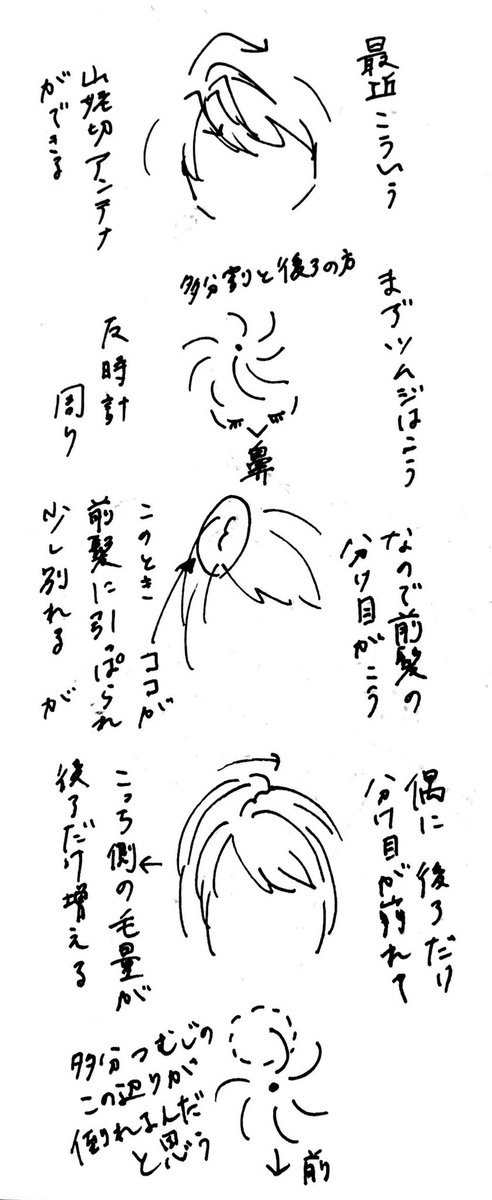 最近こういう
山姥切アンテナ
ができる
まずツムジはこう
多分割と後ろの方
反時計
周り
鼻
なので前髪の
分け目がこう
ココが
このとき
前髪に引っぱられ
少し別れる が
偶に後ろだけ
分け目が崩れて
こっち側の毛量が
後ろだけ増える
多分つむじの
この辺りが
倒れるんだ
と思う
前